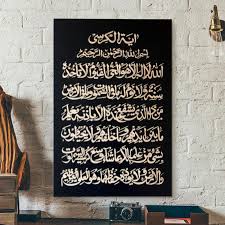 آية الكرسي
بسم الله الرحمن الرحيم
الله لا إله إلا هو الحي القيوم لا تأخذه
سنة ولا نوم له ما في السموات وما في الأرض
من ذا الذي يشفع عنده إلا بإذنه يعلم
ما بين أيديهم وما خلفهم ولا يحيطون
بشيء من علمه إلا بما شاء وسع كرسيه السموات
والأرض ولا يؤده حفظهما وهو العلي العظيم